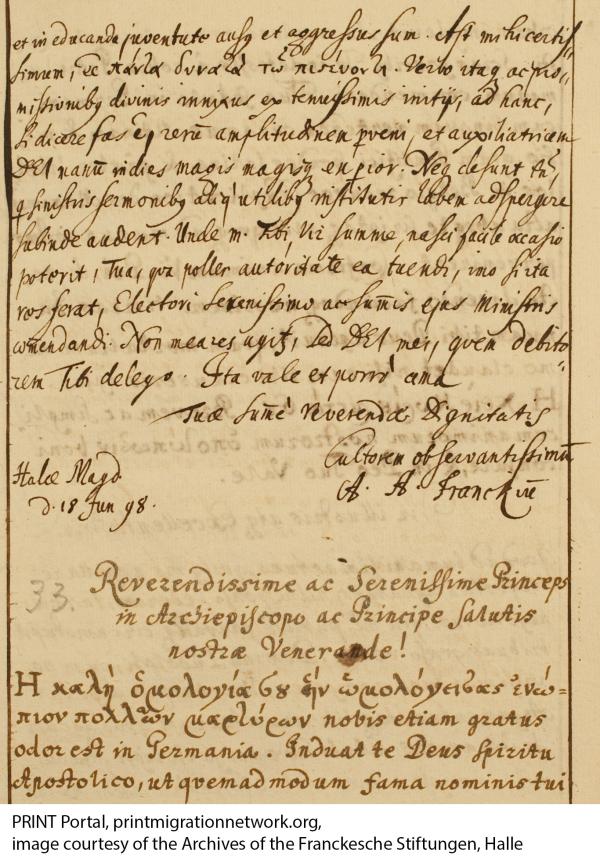 et in educanda juventute ausq et aggressus sum. Ast mihi certis-
simum, πάντα δυνατὰ τῷ πιστεύοντι. Verbo itaq ac pro-
missionibq divinis innixus ex tenuissimis initijs, ad hanc,
si dicere fas e, rerū amplitudinem pveni, et auxiliatricem
DEI manū indies magis magisq experior. Neq desunt tn,
q sinistris sermonibq utilibq institutis labem adspergere
subinde audent. Unde m. Tibi, Vir summe, nasci facile occasio
poterit, Tua, qva polles autoritate ea tuendi, imo si ita
res ferat, Electori Serenissimo ac sumis ejus Ministris
comendandi. Non meam res agitq, sed DEI mei, quem debito-
rem Tibi delego. Ita vale et porro ama
Tuæ sumè Reverendæ Dignitatis
Cultorem observantissimū
A. A. Franckiū
Halæ Magd
d. 18 Jun 98.
33. Reverendissime ac Serenissime Princeps
in Archiepiscopo ac Principe salutis
nostræ Venerande!
Ἡ καλὴ ὁμολογία σου ἣν ὡμολόγησας ἐνώ=
πιον πολλῶν μαρτύρων nobis etiam gratus
odor est in Germania. Induat te Deus spiritu
Apostolico, ut qvemadmodum fama nominis tui
PRINT Portal, printmigrationnetwork.org,
image courtesy of the Archives of the Franckesche Stiftungen, Halle